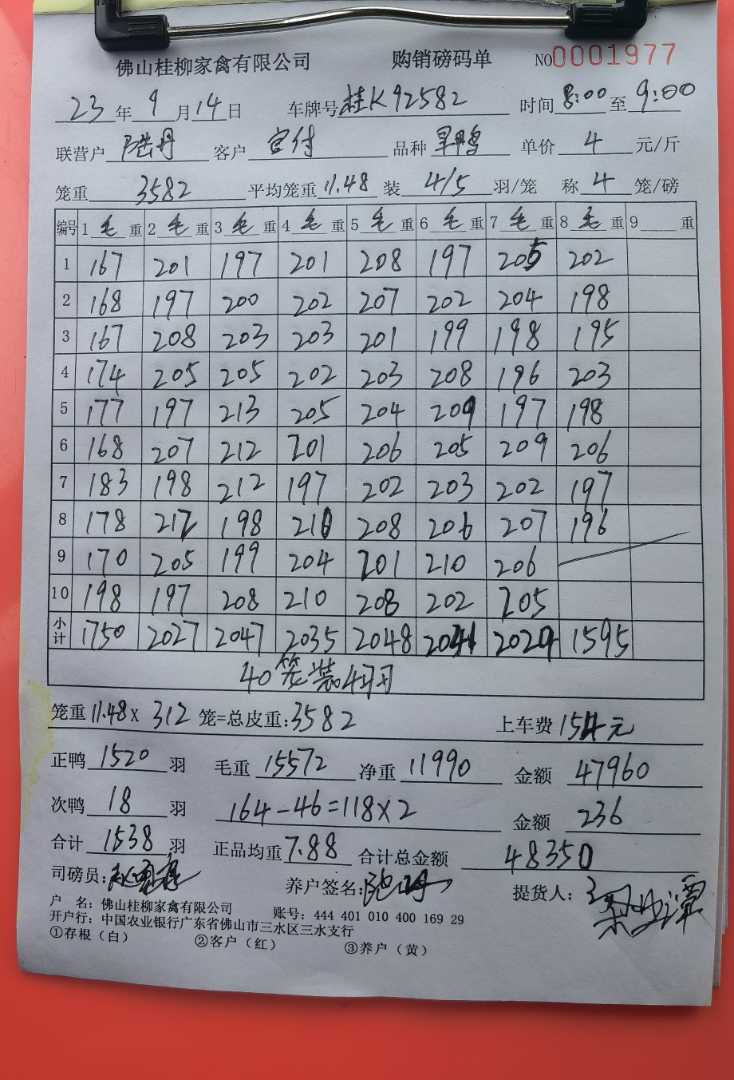 佛山桂柳家禽有限公司 购销磅码单 NO0001977
23年9月14日 车牌号桂K92582 时间8:00至9:00
联营户陆丹 客户宫付 品种旱鸭 单价4元/斤
笼重3582 平均笼重11.48装4/5羽/笼 称4笼/磅
编号 1毛重 2毛重 3毛重 4毛重 5毛重 6毛重 7毛重 8毛重 9重
1 167 201 197 201 208 197 205 202
2 168 197 200 202 207 202 204 198
3 167 208 203 203 201 199 198 195
4 174 205 205 202 203 208 196 203
5 177 197 213 205 204 209 197 198
6 168 207 212 201 206 205 209 206
7 183 198 212 197 202 203 202 197
8 178 212 198 210 208 206 207 196
9 170 205 199 204 201 210 206
10 198 197 208 210 208 202 205
小计 1750 2027 2047 2035 2048 2041 2029 1595
40笼装4羽
笼重11.48×312笼=总皮重:3582 上车费154元
正鸭1520羽 毛重15572净重11990 金额47960
次鸭18羽 164-46=118×2 金额236
合计1538羽 正品均重7.88合计总金额48350
司磅员: 养户签名:陆丹 提货人:
户 名:佛山桂柳家禽有限公司 账号:444 401 010 400 169 29
开户行:中国农业银行广东省佛山市三水区三水支行
①存根(白) ②客户(红) ③养户(黄)